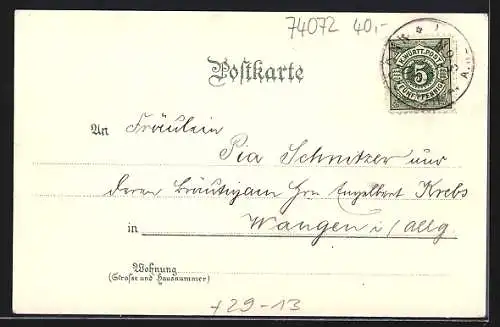 74072 40,-
K. WÜRTT. POST
5
FÜNF PFENNIG
Postkarte
An Fräulein
Pia Schnitzer und
deren Bräutigam Hrn Engelbert Krebs
in Wangen i/Allg.
Wohnung
(Strasse und Hausnummer)
+29-13